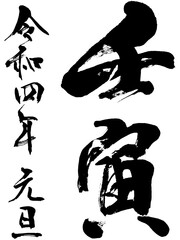 壬寅
令和四年 元旦